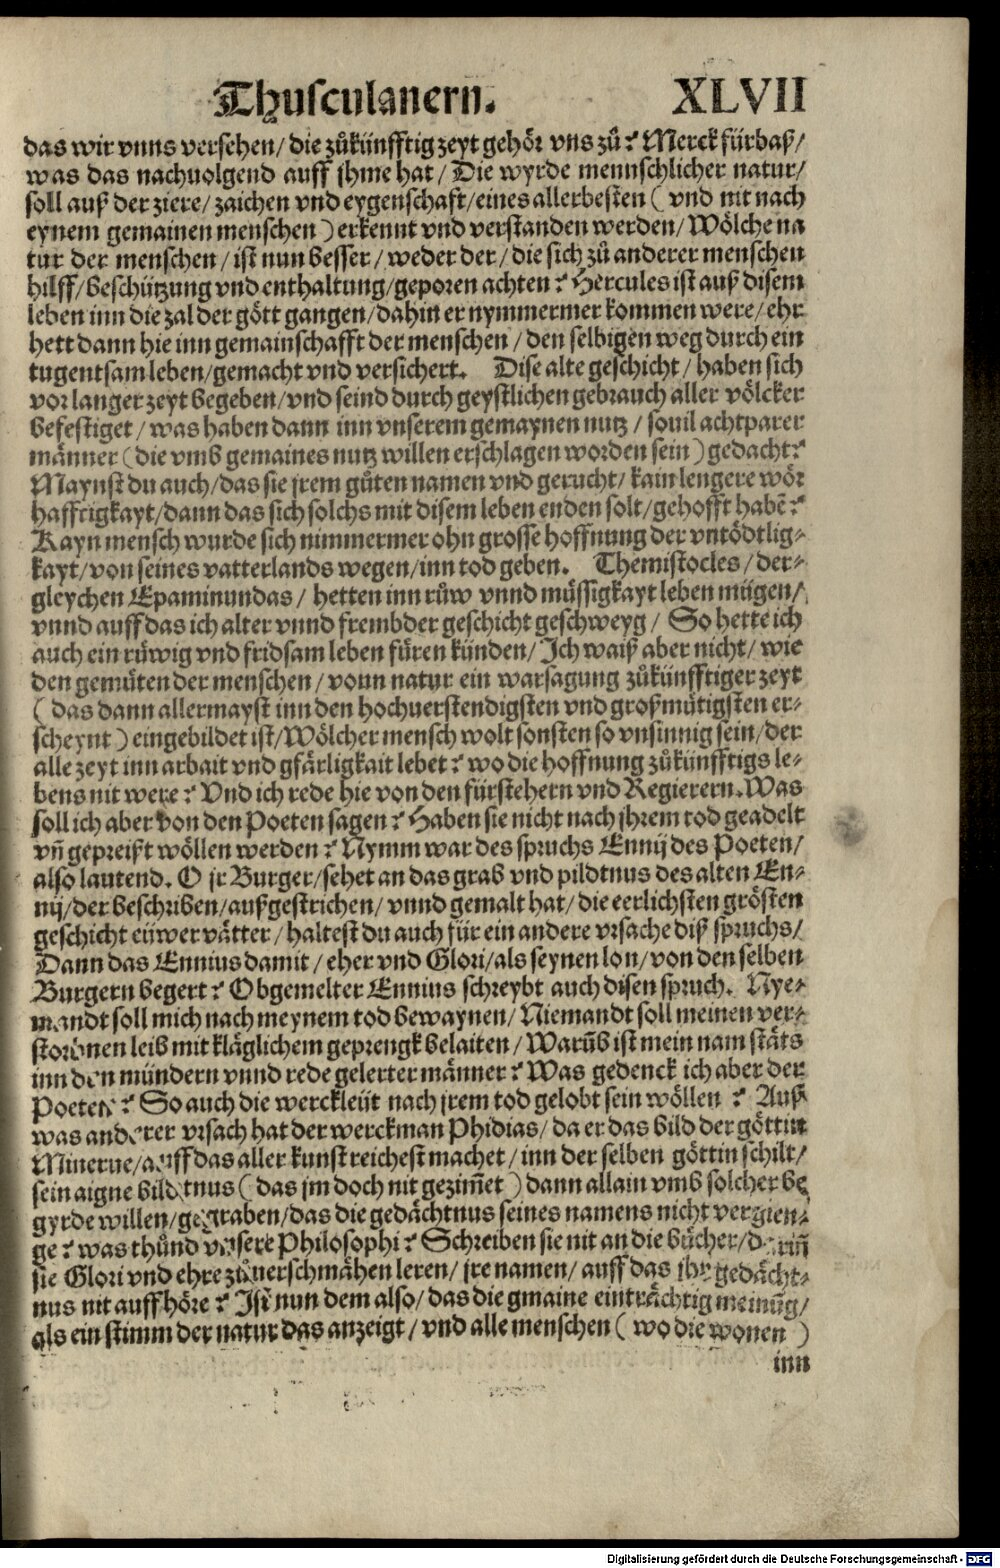 Thusculanern. XLVII
das wir vnns versehen/ die zůkünfftig zeyt gehör vns zů? Merck fürbaß/
was das nachuolgend auff jhme hat/ Die wyrde mennschlicher natur/
soll auß der ziere/ zaichen vnd eygenschaft/ eines allerbesten ( vnd nit nach
eynem gemainen menschen ) erkennt vnd verstanden werden/ Wölche na
tur der menschen/ ist nun besser/ weder der/ die sich zů anderer menschen
hilff/ beschützung vnd enthaltung/ geporen achten? Hercules ist auß disem
leben inn die zal der gött gangen/ dahin er nymmermer kommen were/ ehr
hett dann hie inn gemainschafft der menschen/ den selbigen weg durch ein
tugentsam leben/ gemacht vnd versichert. Dise alte geschicht/ haben sich
vor langer zeyt begeben/ vnd seind durch geystlichen gebrauch aller völcker
befestiget/ was haben dann inn vnserem gemaynen nutz/ souil achtparer
männer ( die vmb gemaines nutz willen erschlagen worden sein ) gedacht?
Maynst du auch/ das sie jrem gůten namen vnd gerucht/ kain lengere wör
hafftigkayt/ dann das sich solchs mit disem leben enden solt/ gehofft habē?
Kayn mensch wurde sich nimmermer ohn grosse hoffnung der vntödtlig-
kayt/ von seines vatterlands wegen/ inn tod geben. Themistocles/ der-
gleychen Epaminundas/ hetten inn růw vnnd müssigkayt leben mügen/
vnnd auff das ich alter vnnd frembder geschicht geschweyg/ So hette ich
auch ein rüwig vnd fridsam leben füren künden/ Ich waiß aber nicht/ wie
den gemüten der menschen/ vonn natur ein warsagung zůkünfftiger zeyt
( das dann allermayst inn den hochuerstendigsten vnd großmütigsten er-
scheynt ) eingebildet ist/ Wölcher mensch wolt sonsten so vnsinnig sein/ der
alle zeyt inn arbait vnd gfärligkait lebet? wo die hoffnung zůkünfftigs le-
bens nit were? Vnd ich rede hie von den fürstehern vnd Regierern. Was
soll ich aber von den Poeten sagen? Haben sie nicht nach jhrem tod geadelt
vñ gepreißt wöllen werden? Nymm war des spruchs Ennij des Poeten/
also lautend. O jr Burger/ sehet an das grab vnd pildtnus des alten En-
nij/ der beschriben/ außgestrichen/ vnnd gemalt hat/ die eerlichsten grösten
geschicht eüwer vätter/ haltest du auch für ein andere vrsache diß spruchs/
Dann das Ennius damit/ eher vnd Glori/ als seynen lon/ von den selben
Burgern begert? Obgemelter Ennius schreybt auch disen spruch. Nye-
mandt soll mich nach meynem tod bewaynen/ Niemandt soll meinen ver-
storbnen leib mit kläglichem geprengk belaiten/ Warūb ist mein nam stäts
inn den mündern vnnd rede gelerter männer? Was gedenck ich aber der
Poeten? So auch die werckleüt nach jrem tod gelobt sein wöllen? Auß
was anderer vrsach hat der werckman Phidias/ da er das bild der göttin
Minerue/ auff das aller kunstreichest machet/ inn der selben göttin schilt/
sein aigne bildtnus ( das jm doch nit gezim̃et ) dann allain vmb solcher be
gyrde willen/ gegraben/ das die gedächtnus seines namens nicht vergien-
ge? was thůnd vnsere Philosophi? Schreiben sie nit an die bücher/ darin̄
sie Glori vnd ehre zůuerschmähen leren/ jre namen/ auff das jhr gedächt-
nus nit auffhöre? Ist nun dem also/ das die gmaine einträchtig meinūg/
als ein stimm der natur das anzeigt/ vnd alle menschen ( wo die wonen )
inn
Digitalisierung gefördert durch die Deutsche Forschungsgemeinschaft - DFG